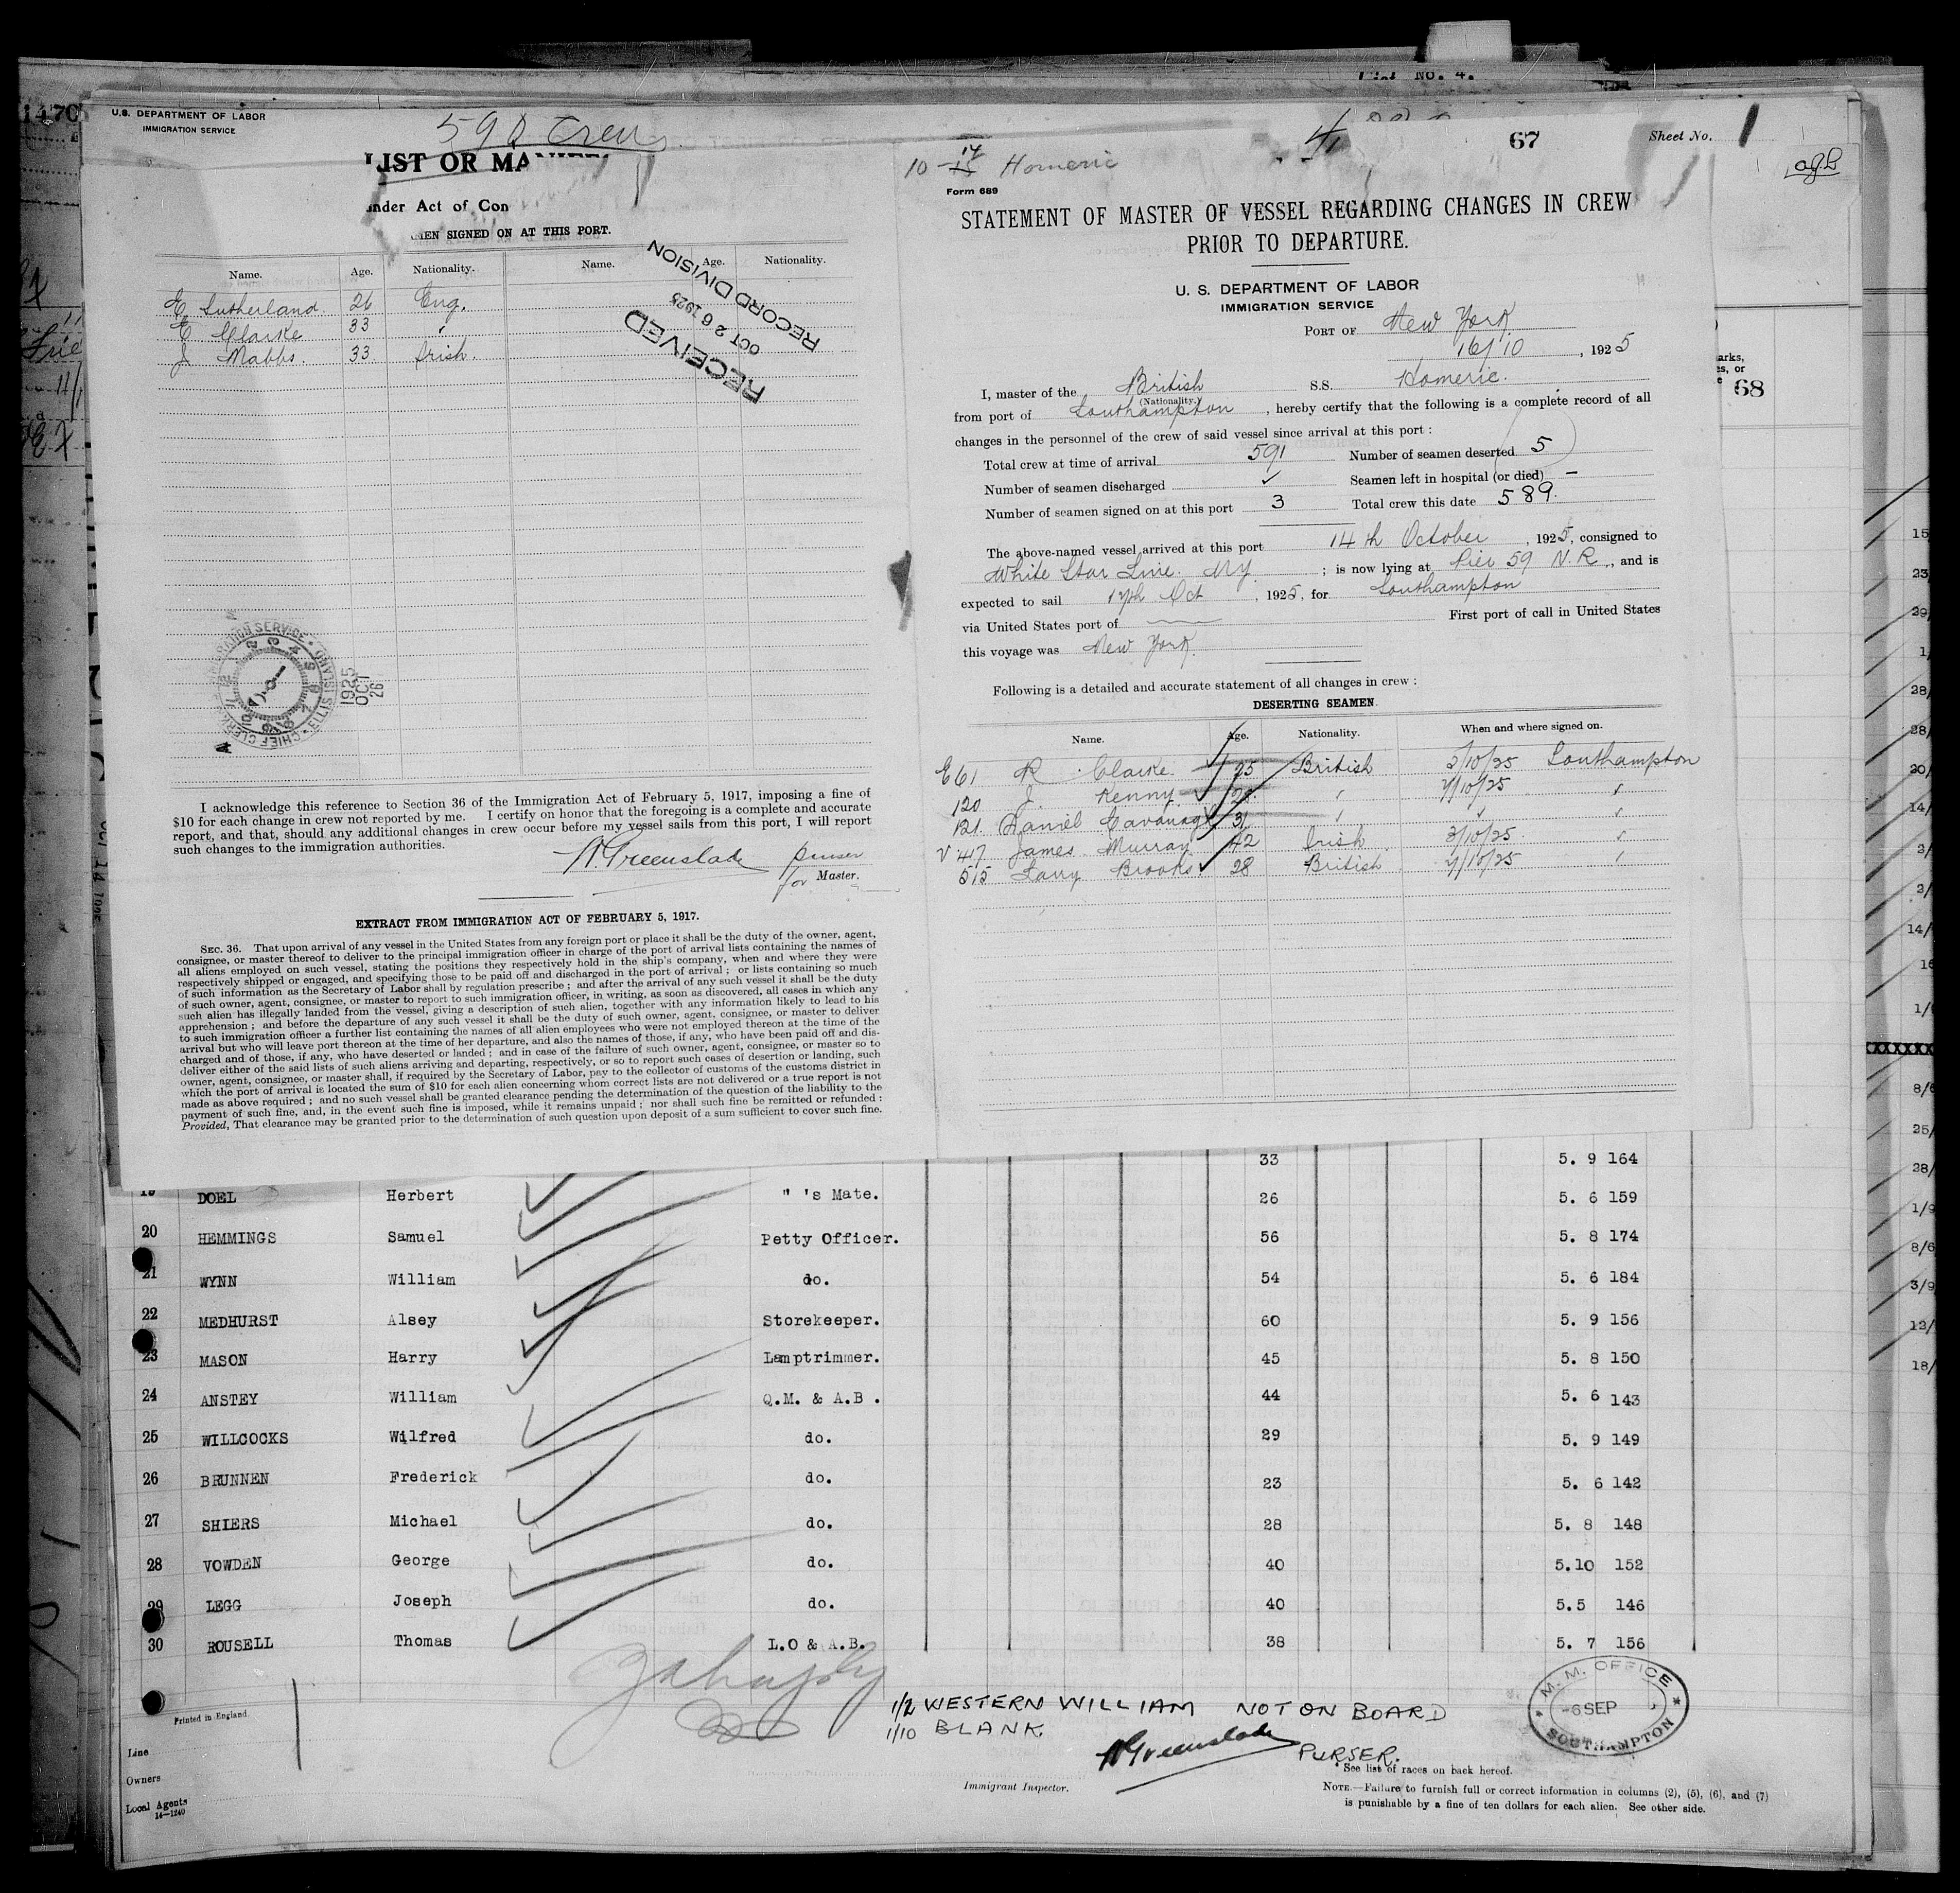 U.S. DEPARTMENT OF LABOR
IMMIGRATION SERVICE
590 Crew
LIST OR MANIFE
under Act of Con
MEN SIGNED ON AT THIS PORT.
Name. Age. Nationality. Name. Age. Nationality.
E Sutherland. 26 Eng.
E Clarke 33 "
J Mabbs. 33 Irish.
RECEIVED
OCT 26 1925
RECORD DIVISION
IMMIGRATION SERVICE · ELLIS ISLAND · CHIEF CLERK
1925
OCT
26
I acknowledge this reference to Section 36 of the Immigration Act of February 5, 1917, imposing a fine of
$10 for each change in crew not reported by me. I certify on honor that the foregoing is a complete and accurate
report, and that, should any additional changes in crew occur before my vessel sails from this port, I will report
such changes to the immigration authorities.
W. Greenslade purser
for Master.
EXTRACT FROM IMMIGRATION ACT OF FEBRUARY 5, 1917.
SEC. 36. That upon arrival of any vessel in the United States from any foreign port or place it shall be the duty of the owner, agent,
consignee, or master thereof to deliver to the principal immigration officer in charge of the port of arrival lists containing the names of
all aliens employed on such vessel, stating the positions they respectively hold in the ship's company, when and where they were
respectively shipped or engaged, and specifying those to be paid off and discharged in the port of arrival; or lists containing so much
of such information as the Secretary of Labor shall by regulation prescribe; and after the arrival of any such vessel it shall be the duty
of such owner, agent, consignee, or master to report to such immigration officer, in writing, as soon as discovered, all cases in which any
such alien has illegally landed from the vessel, giving a description of such alien, together with any information likely to lead to his
apprehension; and before the departure of any such vessel it shall be the duty of such owner, agent, consignee, or master to deliver
to such immigration officer a further list containing the names of all alien employees who were not employed thereon at the time of the
arrival but who will leave port thereon at the time of her departure, and also the names of those, if any, who have been paid off and dis-
charged and of those, if any, who have deserted or landed; and in case of the failure of such owner, agent, consignee, or master so to
deliver either of the said lists of such aliens arriving and departing, respectively, or so to report such cases of desertion or landing, such
owner, agent, consignee, or master shall, if required by the Secretary of Labor, pay to the collector of customs of the customs district in
which the port of arrival is located the sum of $10 for each alien concerning whom correct lists are not delivered or a true report is not
made as above required; and no such vessel shall be granted clearance pending the determination of the question of the liability to the
payment of such fine, and, in the event such fine is imposed, while it remains unpaid; nor shall such fine be remitted or refunded:
Provided, That clearance may be granted prior to the determination of such question upon deposit of a sum sufficient to cover such fine.
67
Sheet No. 1
10-14 Homeric
Form 689
STATEMENT OF MASTER OF VESSEL REGARDING CHANGES IN CREW
PRIOR TO DEPARTURE.
U. S. DEPARTMENT OF LABOR
IMMIGRATION SERVICE
PORT OF New York
16/10, 1925
I, master of the British S.S. Homeric.
(Nationality.)
from port of Southampton, hereby certify that the following is a complete record of all
changes in the personnel of the crew of said vessel since arrival at this port:
Total crew at time of arrival 591 Number of seamen deserted 5
Number of seamen discharged ✓ Seamen left in hospital (or died) –
Number of seamen signed on at this port 3 Total crew this date 589.
The above-named vessel arrived at this port 14th October, 1925, consigned to
White Star Line. NY; is now lying at Pier 59 N.R., and is
expected to sail 17th Oct, 1925, for Southampton
via United States port of First port of call in United States
this voyage was New York.
Following is a detailed and accurate statement of all changes in crew:
DESERTING SEAMEN.
Name. Age. Nationality. When and where signed on.
E61 R. Clarke 25 British 5/10/25 Southampton
120 J. Kenny " 7/10/25 "
121. Daniel Cavanagh 31 " " "
V 47 James Murray 42 Irish 3/10/25 "
515 Larry Brooks 28 British 7/10/25 "
68
33 5. 9 164
19 DOEL Herbert " 's Mate. 26 5. 6 159
20 HEMMINGS Samuel Petty Officer. 56 5. 8 174
21 WYNN William do. 54 5. 6 184
22 MEDHURST Alsey Storekeeper. 60 5. 9 156
23 MASON Harry Lamptrimmer. 45 5. 8 150
24 ANSTEY William Q.M. & A.B. 44 5. 6 143
25 WILLCOCKS Wilfred do. 29 5. 9 149
26 BRUNNEN Frederick do. 23 5. 6 142
27 SHIERS Michael do. 28 5. 8 148
28 VOWDEN George do. 40 5.10 152
29 LEGG Joseph do. 40 5.5 146
30 ROUSELL Thomas L.O & A.B. 38 5. 7 156
1/2 WESTERN WILLIAM NOT ON BOARD
1/10 BLANK
W Greenslade PURSER.
M. M. OFFICE
-6 SEP
SOUTHAMPTON
Printed in England.
Line
Owners
Local Agents
14-1240
Immigrant Inspector.
* See list of races on back hereof.
NOTE.—Failure to furnish full or correct information in columns (2), (5), (6), and (7)
is punishable by a fine of ten dollars for each alien. See other side.